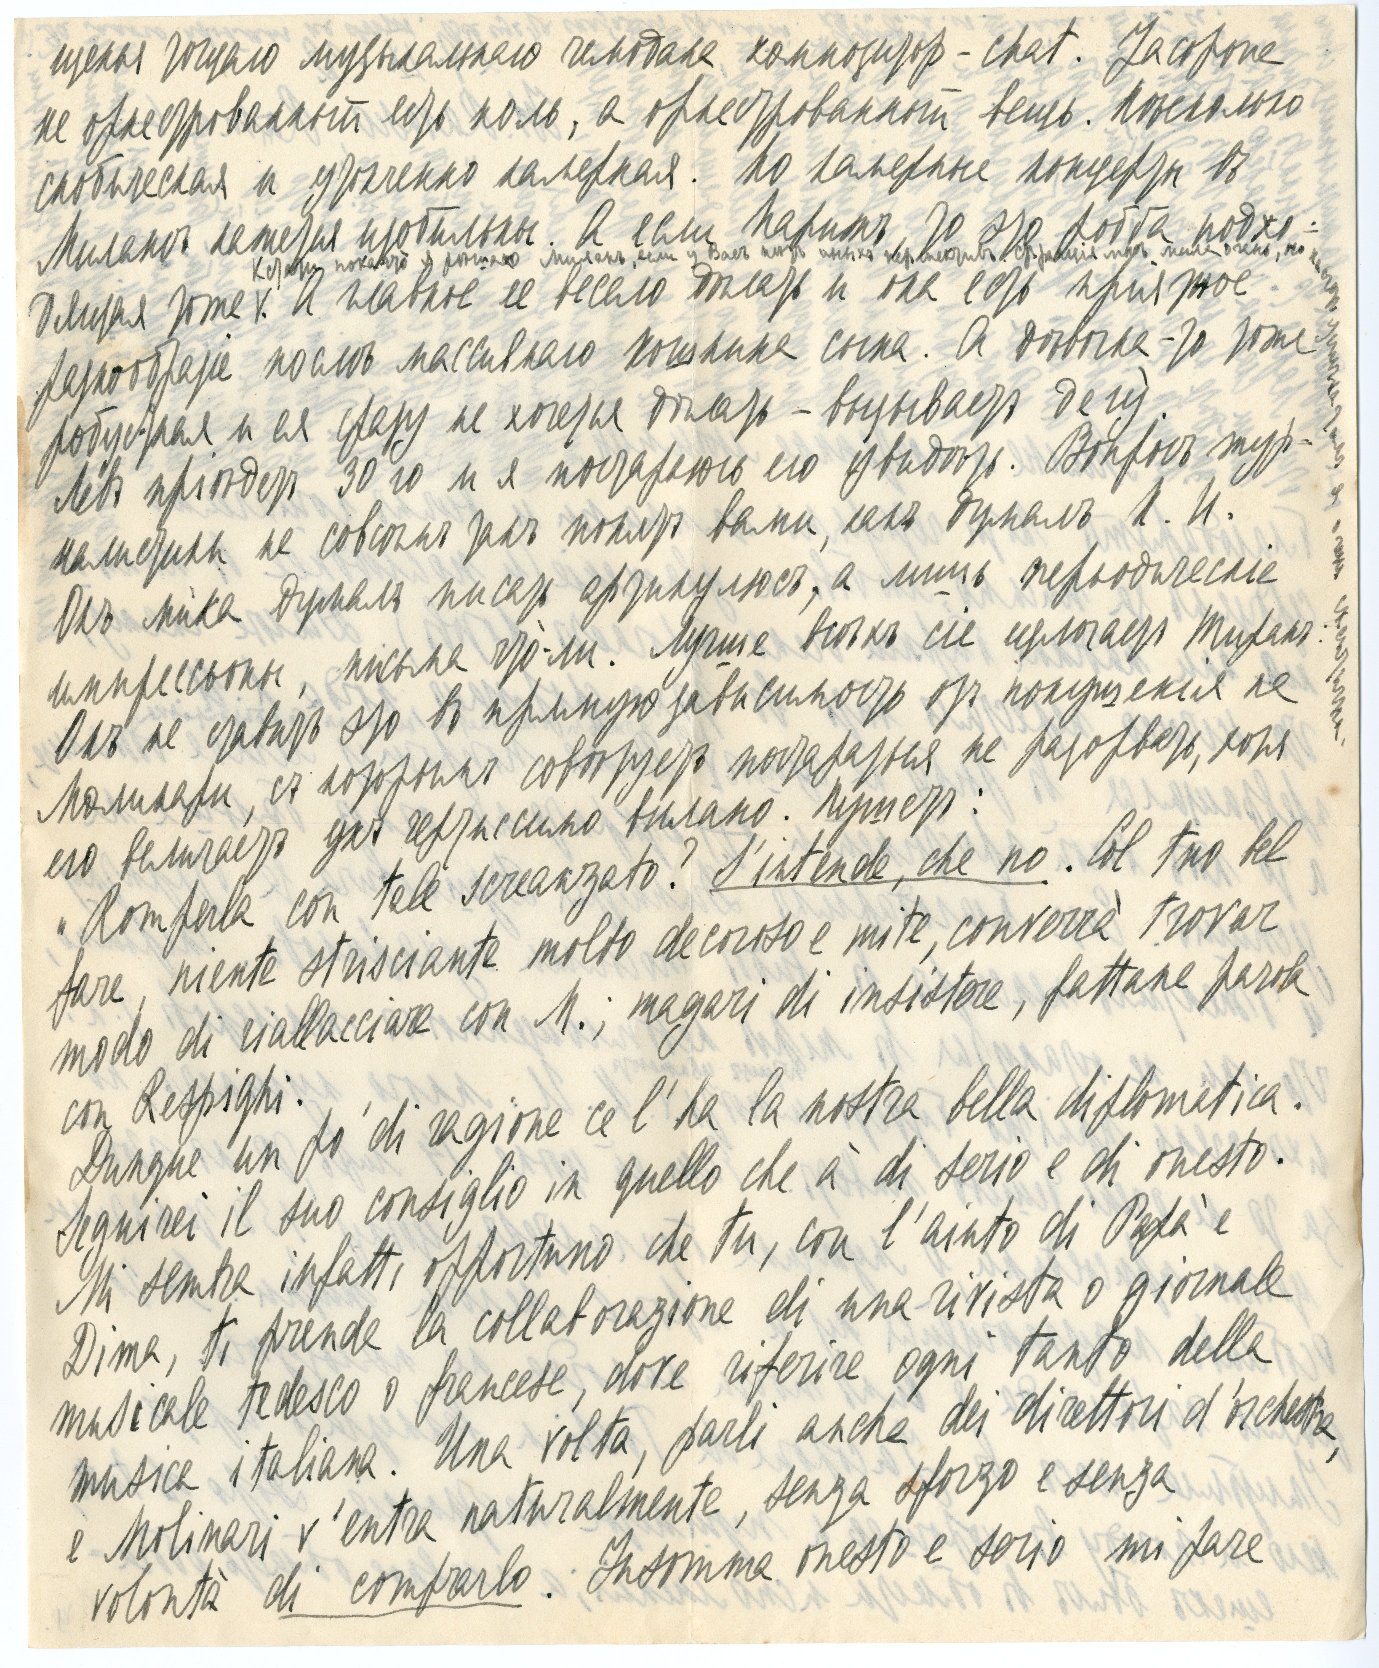 щенья тощаго музыкальнаго чемодана композитор-chat. Jacopone
не оркестрованный есть ноль, а оркестрованный вещь. Несколько
снобическая и утонченно камерная. Но камерные концерты въ
Миланѣ кажется изобильны. А если Парижъ, то это роба подхо-
Кстати покамѣстъ я
дящая тоже V. А главное ее весело дѣлать и она есть прiятное
разнообразiе послѣ массивнаго кошкина сына. А дѣвочка-то тоже
робустная и ея сразу не хочется дѣлать – вызываетъ
Лёвъ прiѣдетъ 30го и я постараюсь его увидѣть. Вопросъ жур-
налистики не совсѣмъ такъ понятъ вами, какъ думалъ К. И.
Онъ mica думалъ писать артикулюсъ, а лишь перiодическiе
импрессьоны, письма что-ли. Лучше всѣхъ сiе излагаетъ Тифанъ.
Онъ не ставитъ это въ прямую зависимость отъ покушенiя на
Молинари, съ которымъ совѣтуетъ постараться не разорвать, хотя
его величаетъ уже чертиссимо виллано. Пишетъ:
"Romperla con tale screanzato? S'intende, che no. Col tuo bel
fare, niente strisciante molto decoroso e mite, converrà trovar
modo di riallacciare con M.; magari di insistere, fattane parola
con Respighi.
Dunque un po' di ragione ce l'ha la nostra bella diplomatica.
Seguirei il suo consiglio in quello che à di serio e di onesto.
Mi sembra infatti opportuno che tu, con l'aiuto di Papà e
Dima, ti prenda la collaborazione di una rivista o giornale
musicale tedesco o francese, dove riferire ogni tanto della
musica italiana. Una volta, parli anche dei direttori d'orchestra,
e Molinari v'entra naturalmente, senza sforzo e senza
volontà di comprarlo. Insomma onesto e serio mi pare